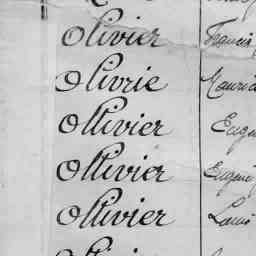 Olivier Francis
Olivrie Maurice
Ollivier Eugè
Ollivier Eugène
Ollivier Louis